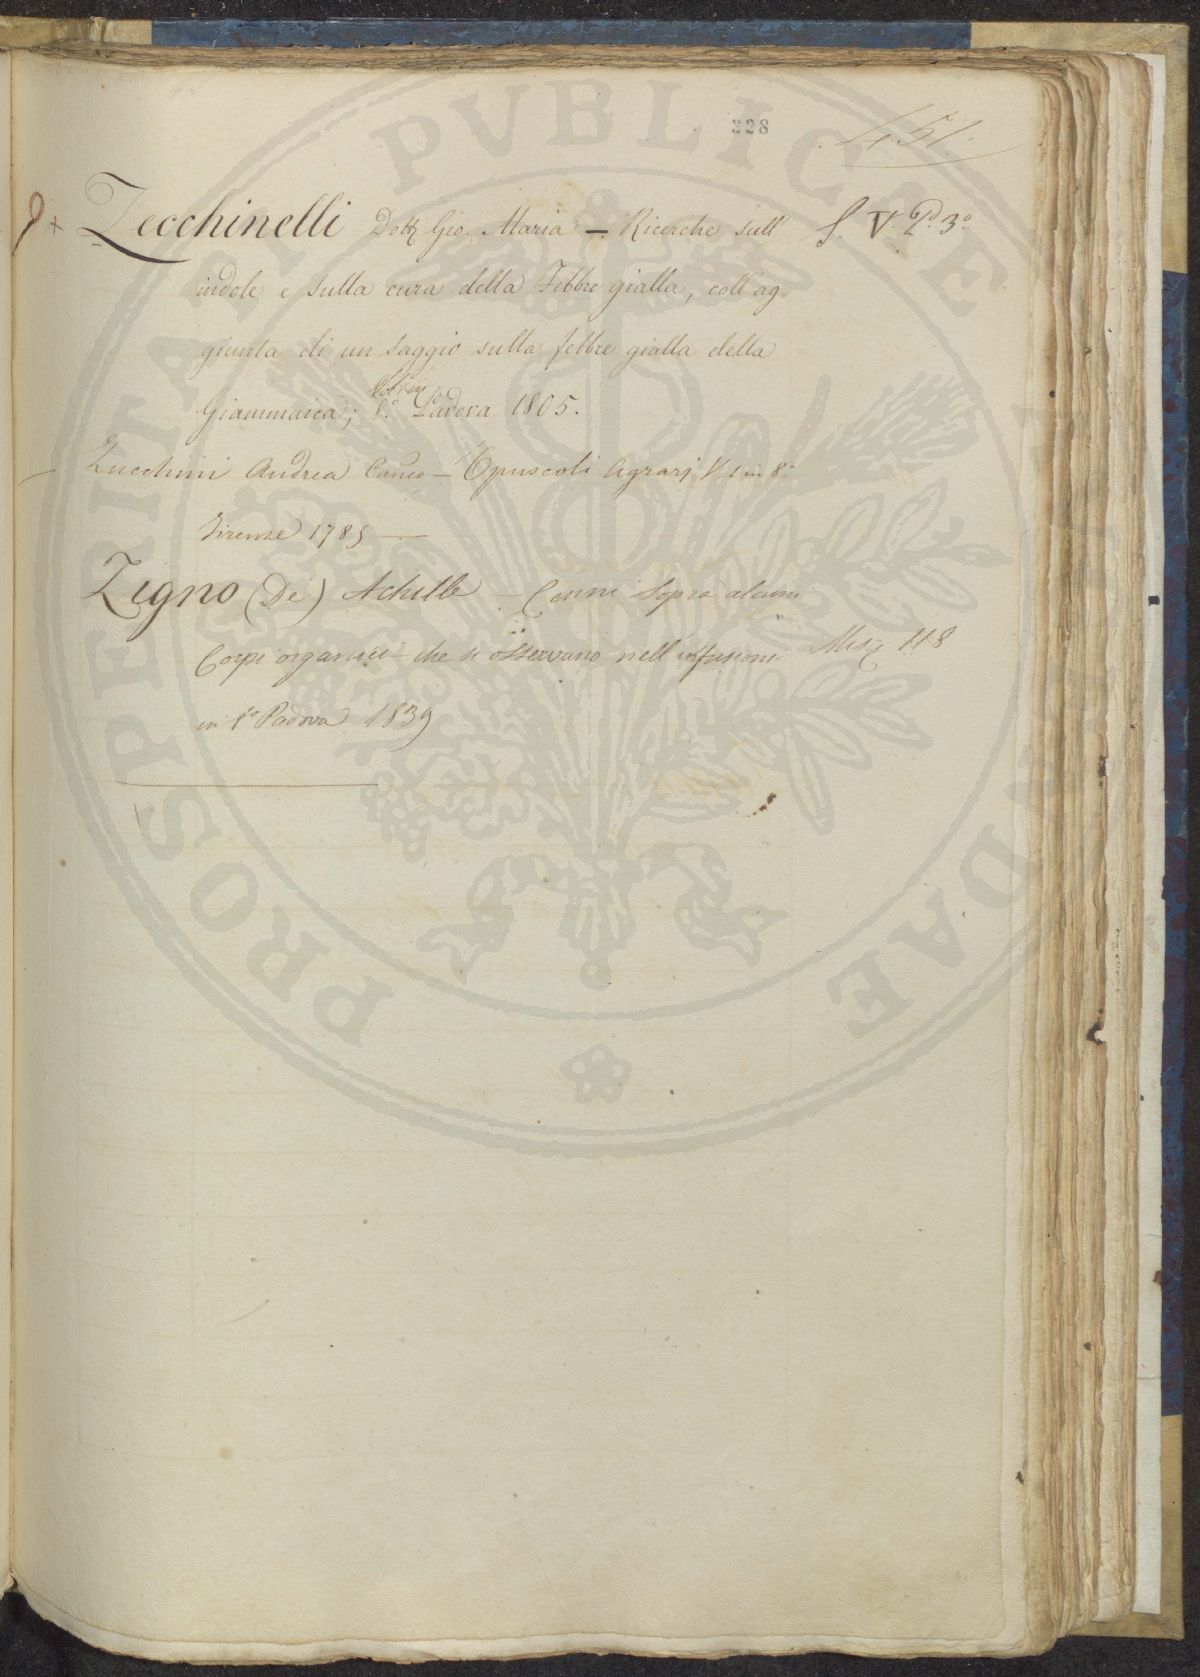 228
451.
+ Zecchinelli Dott. Gio. Maria – Ricerche sull' S. V. P.d 3.o
indole e sulla cura della Febbre gialla, coll'ag-
giunta di un saggio sulla febbre gialla della
Giammaica; Vol. 1 in 8.o Padova 1805.
– Zucchini Andrea Canco – Opuscoli Agrarj V. 1 in 8.o
Firenze 1785 —
Zigno (De) Achille – Cenni sopra alcuni
Corpi organici che si osservano nell'infusioni Misc. 118
in 8o Padova 1839
PROSPERITATI PVBLICAE AVGENDAE